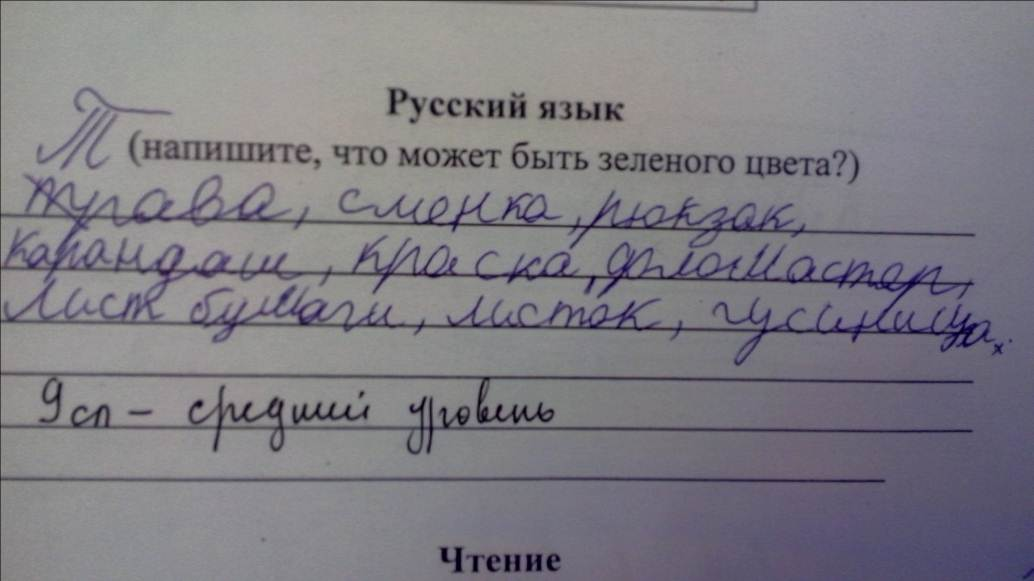 Русский язык
Т (напишите, что может быть зеленого цвета?)
трава, сменка, рюкзак,
карандаш, краска, фломастер,
лист бумаги, листок, гусиница.
9 сл – средний уровень
Чтение